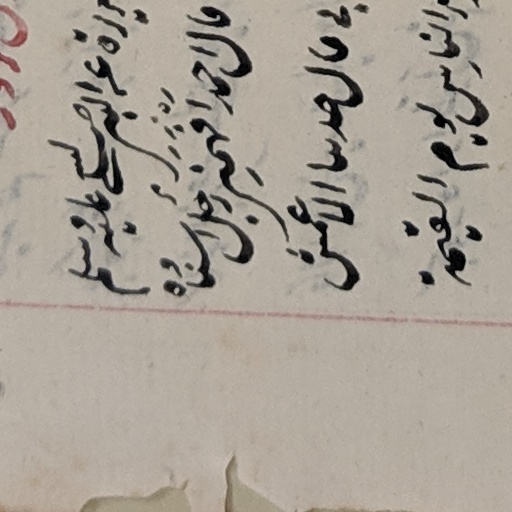 هريرة عن النبي صلى الله عليه وسلم
قال احمد افهمني رجل اسناده
بي قال حدثنا الاعمش
الناس يوم القيمة